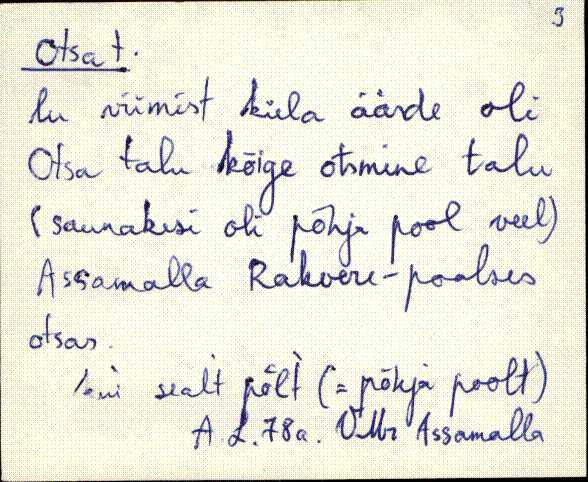 3
Otsa t.
lu viimist küla äärde oli
Otsa talu kõige otsmine talu
(saunakesi oli põhja pool veel)
Assamalla Rakvere-poolses
otsas.
sealt põlt (= põhja poolt)
A. L. 78a. VMr Assamalla